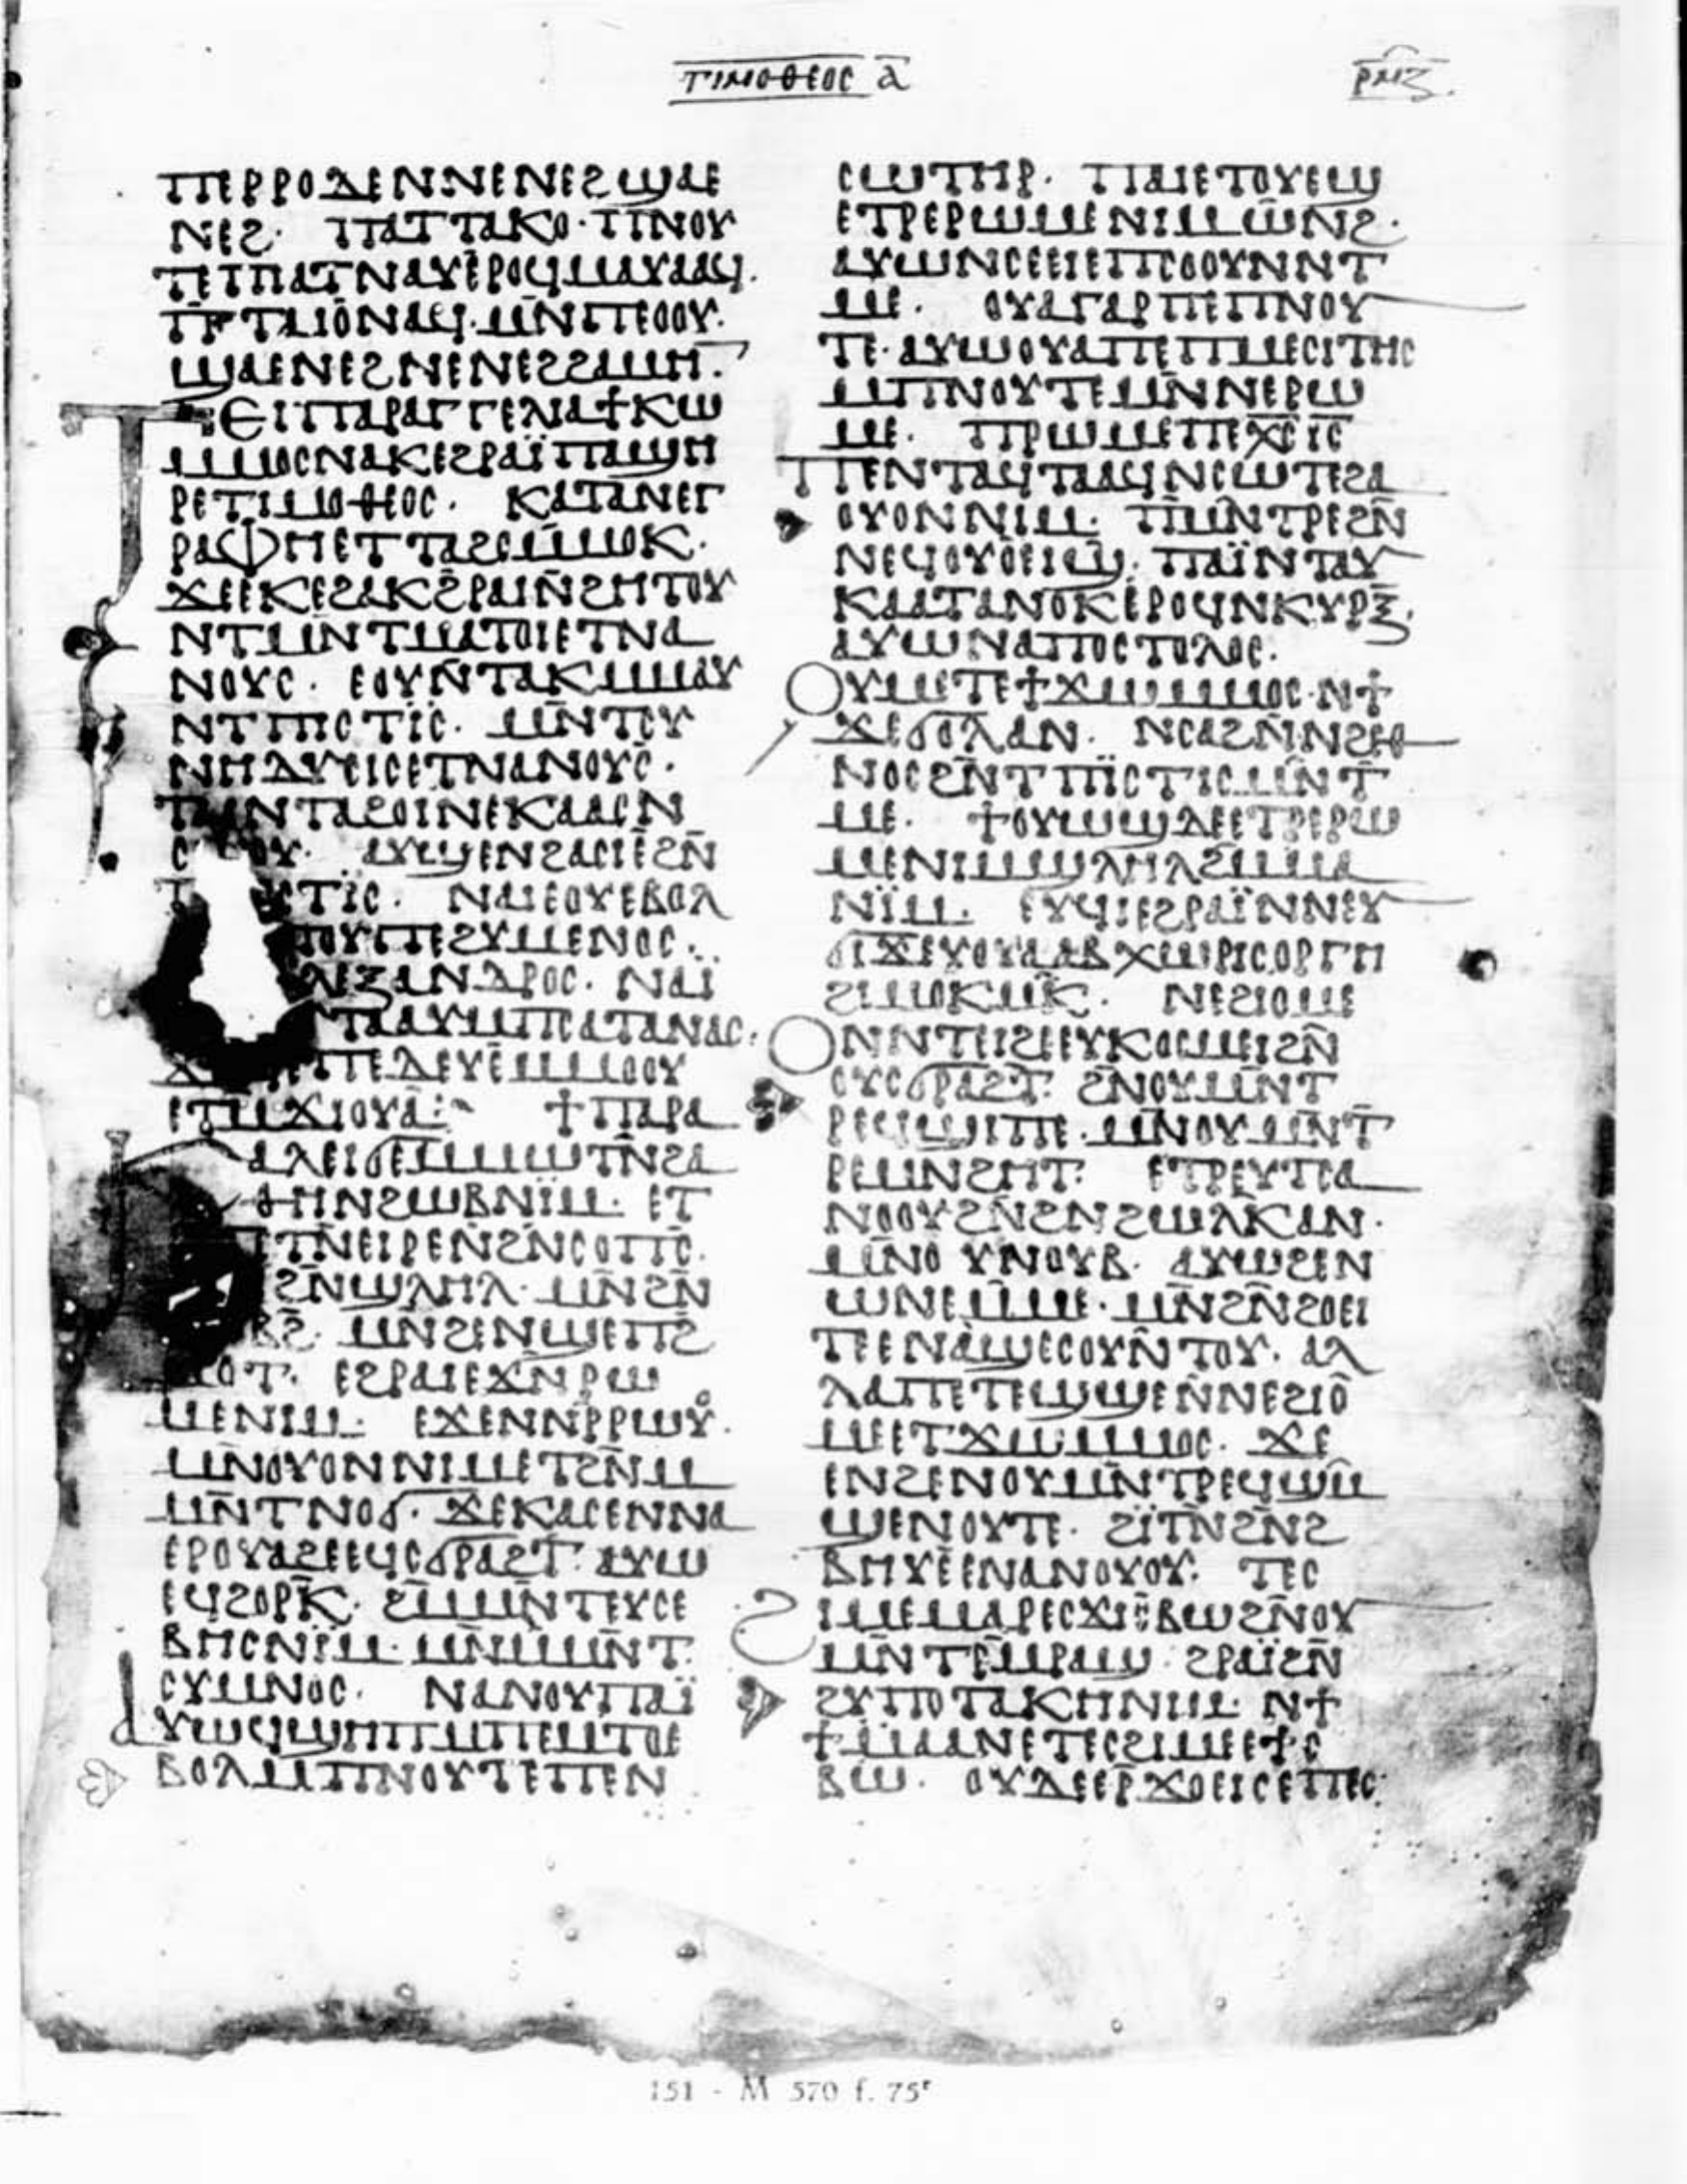 ⲧⲓⲙⲟⲑⲉⲟⲥ ⲁ̅
ⲣⲙⲍ
ⲡⲉⲣⲣⲟ ⲇⲉ ⲛⲛⲉⲛⲉϩ ϣⲁⲉ
ⲛⲉϩ· ⲡⲁⲧⲧⲁⲕⲟ· ⲡⲛⲟⲩ
ⲧⲉ ⲡⲓⲁⲧⲛⲁⲩ ⲉⲣⲟϥ ⲙⲁⲩⲁⲁϥ·
ⲡⲧⲁⲓⲟ ⲛⲁϥ· ⲙⲛ ⲡⲉⲟⲟⲩ·
ϣⲁⲉⲛⲉϩ ⲛⲉⲛⲉϩ ϩⲁⲙⲏⲛ·
ⲧⲉⲓⲡⲁⲣⲁⲅⲅⲉⲗⲓⲁ ϯⲕⲱ
ⲙⲙⲟⲥ ⲛⲁⲕ ⲉϩⲣⲁⲓ̈ ⲡⲁϣⲏ
ⲣⲉ ⲧⲓⲙⲟⲑⲉⲟⲥ· ⲕⲁⲧⲁ ⲛⲉⲅ
ⲣⲁⲫⲏ ⲉⲧⲧⲁϩⲉ ⲙⲙⲟⲕ·
ϫⲉⲉⲕⲉϩⲁⲕ ϩⲣⲁⲓ ⲛϩⲏⲧⲟⲩ
ⲛⲧⲙⲛⲧⲙⲁⲧⲟⲓ ⲉⲧⲛⲁ
ⲛⲟⲩⲥ· ⲉⲟⲩⲛⲧⲁⲕ ⲙⲙⲁⲩ
ⲛⲧⲡⲓⲥⲧⲓⲥ· ⲙⲛ ⲧⲥⲩ
ⲛⲏⲇⲩⲉⲓⲥ ⲉⲧⲛⲁⲛⲟⲩⲥ·
ⲧⲁⲓ ⲛⲧⲁϩⲟⲓⲛⲉ ⲕⲁⲁⲥ ⲛ
ⲥⲱⲟⲩ· ⲁⲩϣⲉⲛϩⲁⲥⲓⲉ ϩⲛ
ⲧⲡⲓⲥⲧⲓⲥ· ⲛⲁⲓ ⲉⲟⲩⲉⲃⲟⲗ
ⲡⲟⲩ ⲡⲉ ϩⲩⲙⲉⲛⲟⲥ·
ⲁⲗⲉⲝⲁⲛⲇⲣⲟⲥ· ⲛⲁⲓ̈
ⲧⲁⲁⲩ ⲙⲡⲥⲁⲧⲁⲛⲁⲥ·
ⲡⲉⲇⲉⲩⲉ ⲙⲙⲟⲟⲩ
ⲉⲧⲙϫⲓⲟⲩⲁ· ϯⲡⲁⲣⲁ
ⲕⲁⲗⲉⲓ ϭⲉ ⲙⲙⲱⲧⲛ ϩⲁ
ⲑⲏ ⲛϩⲱⲃ ⲛⲓⲙ· ⲉⲧ
ⲣⲉⲧⲛⲉⲓⲣⲉ ⲛϩⲛⲥⲟⲡⲥ·
ϩⲛϣⲗⲏⲗ· ⲙⲛ ϩⲛ
ⲧⲱⲃϩ· ⲙⲛ ϩⲉⲛϣⲉⲡϩ
ⲙⲟⲧ· ⲉϩⲣⲁⲓ ⲉϫⲛ ⲣⲱ
ⲙⲉ ⲛⲓⲙ· ⲉϫⲉⲛ ⲛⲣⲣⲱⲟⲩ·
ⲙⲛ ⲟⲩⲟⲛ ⲛⲓⲙ ⲉⲧϩⲛ ⲙ
ⲙⲛⲧⲛⲟϭ· ϫⲉⲕⲁⲥ ⲉⲛⲛⲁ
ⲉⲣ ⲟⲩⲁϩⲉ ⲉϥⲥϭⲣⲁϩⲧ· ⲁⲩⲱ
ⲉϥϩⲟⲣⲕ· ϩⲙ ⲙⲛⲧⲉⲩⲥⲉ
ⲃⲏⲥ ⲛⲓⲙ· ⲙⲛ ⲙⲙⲛⲧ
ⲥⲩⲙⲛⲟⲥ· ⲛⲁⲛⲟⲩ ⲡⲁⲓ̈
ⲁⲩⲱ ϥϣⲏⲡ ⲙⲡⲉⲙⲧⲟ ⲉ
ⲃⲟⲗ ⲙⲡⲛⲟⲩⲧⲉ ⲡⲉⲛ
ⲥⲱⲧⲏⲣ· ⲡⲁⲓ ⲉⲧⲟⲩⲉϣ
ⲉⲧⲣⲉⲣⲱⲙⲉ ⲛⲓⲙ ⲱⲛϩ·
ⲁⲩⲱ ⲛⲥⲉⲉⲓ ⲉⲡⲥⲟⲟⲩⲛ ⲛⲧ
ⲙⲉ· ⲟⲩⲁ ⲅⲁⲣ ⲡⲉ ⲡⲛⲟⲩ
ⲧⲉ· ⲁⲩⲱ ⲟⲩⲁ ⲡⲉ ⲡⲙⲉⲥⲓⲧⲏⲥ
ⲙⲡⲛⲟⲩⲧⲉ ⲙⲛ ⲛⲉⲣⲱ
ⲙⲉ· ⲡⲣⲱⲙⲉ ⲡⲉⲭⲥ ⲓⲥ
ⲡⲉⲛⲧⲁϥⲧⲁⲁϥ ⲛⲥⲱⲧⲉ ϩⲁ
ⲟⲩⲟⲛ ⲛⲓⲙ· ⲧⲙⲛⲧⲣⲉ ϩⲛ
ⲛⲉϥⲟⲩⲟⲉⲓϣ· ⲡⲁⲓ̈ ⲛⲧⲁⲩ
ⲕⲁⲁⲧ ⲁⲛⲟⲕ ⲉⲣⲟϥ ⲛⲕⲩⲣⲝ·
ⲁⲩⲱ ⲛⲁⲡⲟⲥⲧⲟⲗⲟⲥ·
ⲟⲩⲙⲉ ⲧⲉϯϫⲱ ⲙⲙⲟⲥ· ⲛϯ
ϫⲉϭⲟⲗ ⲁⲛ· ⲛⲥⲁϩ ⲛⲛϩⲉⲑ
ⲛⲟⲥ ϩⲛ ⲧⲡⲓⲥⲧⲓⲥ ⲙⲛ ⲧ
ⲙⲉ· ϯⲟⲩⲱϣ ⲇⲉ ⲉⲧⲣⲉⲣⲱ
ⲙⲉ ⲛⲓⲙ ϣⲗⲏⲗ ϩⲙ ⲙⲁ
ⲛⲓⲙ· ⲉⲩϥⲓ ⲉϩⲣⲁⲓ̈ ⲛⲛⲉⲩ
ϭⲓϫ ⲉⲩⲟⲩⲁⲁⲃ ⲭⲱⲣⲓⲥ ⲟⲣⲅⲏ
ϩⲓ ⲙⲟⲕⲙⲕ· ⲛⲉϩⲓⲟⲙⲉ
ⲟⲛ ⲛⲧⲉⲓϩⲉ ⲉⲩⲕⲟⲥⲙⲉⲓ ϩⲛ
ⲟⲩⲥϭⲣⲁϩⲧ· ϩⲛ ⲟⲩⲙⲛⲧ
ⲣⲉϥϣⲓⲡⲉ· ⲙⲛ ⲟⲩⲙⲛⲧ
ⲣⲉⲙⲛϩⲏⲧ· ⲉⲧⲣⲉⲩⲧⲥⲁ
ⲛⲟⲟⲩ ϩⲛ ϩⲛϩⲱⲗⲕ ⲁⲛ·
ⲙⲛ ⲟⲩⲛⲟⲩⲃ· ⲁⲩⲱ ϩⲉⲛ
ⲱⲛⲉ ⲙⲙⲉ· ⲙⲛ ϩⲛϩⲟⲉⲓ
ⲧⲉ ⲉⲛⲁϣⲉⲥⲟⲩⲛⲧⲟⲩ· ⲁⲗ
ⲗⲁ ⲡⲉⲧⲉϣϣⲉ ⲛⲛⲉϩⲓⲟ
ⲙⲉ ⲉⲧϫⲱ ⲙⲙⲟⲥ· ϫⲉ
ⲉⲛϩⲉⲛⲟⲩⲙⲛⲧⲣⲉϥϣⲙ
ϣⲉⲛⲟⲩⲧⲉ· ϩⲓⲧⲛ ϩⲛϩ
ⲃⲏⲩⲉ ⲉⲛⲁⲛⲟⲩⲟⲩ· ⲧⲉⲥ
ϩⲓⲙⲉ ⲙⲁⲣⲉⲥϫⲓⲥⲃⲱ ϩⲛ ⲟⲩ
ⲙⲛⲧⲣⲙⲣⲁϣ· ϩⲣⲁⲓ̈ ϩⲛ
ϩⲩⲡⲟⲧⲁⲕⲏ ⲛⲓⲙ· ⲛϯ
ϯⲙⲁ ⲁⲛ ⲉⲧⲉⲥϩⲓⲙⲉ ⲉϯⲥ
ⲃⲱ· ⲟⲩⲇⲉ ⲉⲣϫⲟⲉⲓⲥ ⲉⲡⲉⲥ
151 - M 570 f. 75ʳ